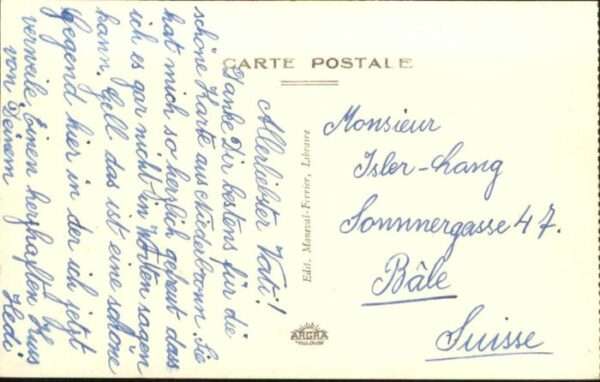 CARTE POSTALE
Allerliebster Vati!
Danke Dir bestens für die
schöne Karte aus Niederbronn. Sie
hat mich so herzlich gefreut das
ich es gar nicht in Worten sagen
kann. Gell das ist eine schöne
Gegend hier in der ich jetzt
verweile. Einen herzhaften Kuss
von Deinem Hedi
Edit. Monnval-Ferrier, Libraire
Monsieur
Isler-Lang
Sonnnergasse 47.
Bâle
Suisse
ARGRA